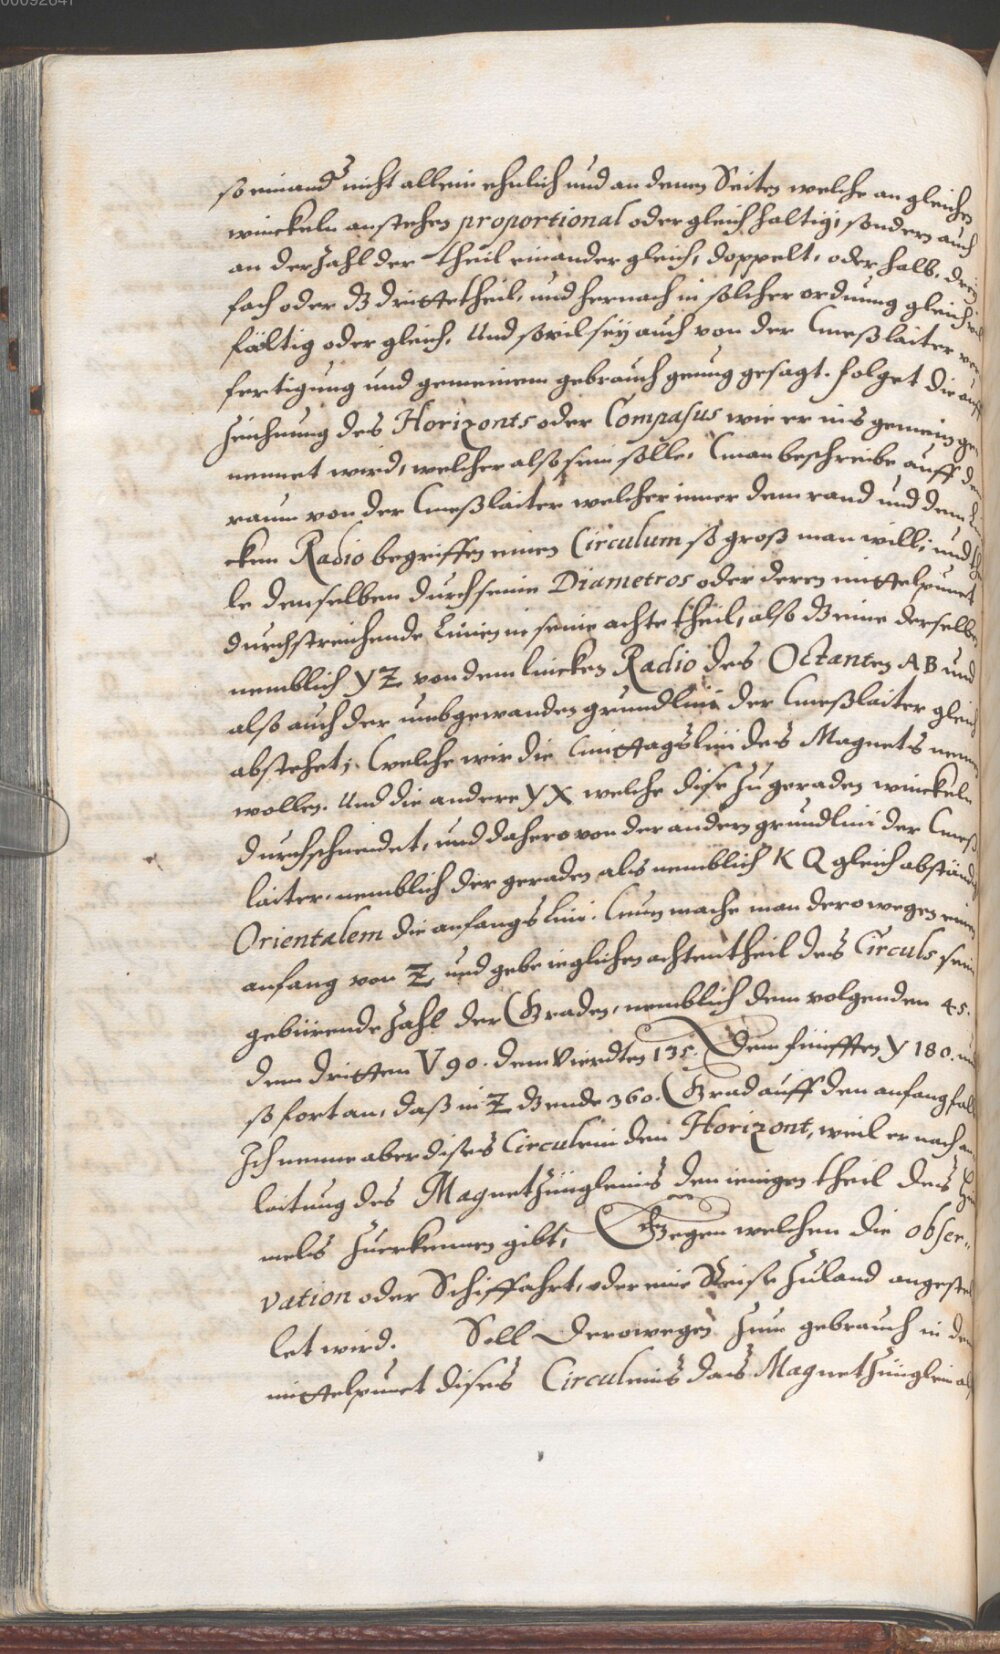 so einand nicht allein ehnlich und an denen Seiten welche an gleichen
winckeln anstehen proportional oder gleichhaltig, sondern auch
an der Zahl der theil einander gleich, doppelt, oder halb, drey
fach oder dz drittetheil, und hernach in solcher ordnung gleich
fältig oder gleich. Und sovil sey auch von der Meßlaiter ver
fertigung und gemeinem gebrauch genug gesagt. folget die auff
Zeichnung des Horizonts oder Compasus wie er ins gemein ge
nennet wird, welcher also sein solle. Man beschreibe auff den
raum von der Meßlaiter welcher inner dem rand und dem
cken Radio begriffen einen Circulum so groß man will, und
le denselben durch seine Diametros oder deren mittelpunct
durchstreichende Linien in seine achte theil, also dz eine derselben
nemblich YZ von dem lincken Radio des Octanten AB und
also auch der umbgewanden grundlini der Meßlaiter gleich
abstehet, Welche wir die Mittagslini des Magnets nennen
wollen. Und die andere YX welche dise zu geraden winckeln
durchschneidet, und dahero von der andern grundlini der Meß
laiter, nemblich der geraden als nemblich KQ gleich abständig
Orientalem die anfangs lini. Nun mache man derowegen einen
anfang von Z, und gebe ieglichen achtentheil des Circuls sein
gebürende Zahl der Graden, nemblich dem volgenden 45.
dem dritten V 90. dem Vierdten 135. Dem fünfften Y 180. und
so fort an, daß in Z dz ende 360. Grad auff den anfang fall
Ich nenne aber dises Circulein den Horizont, weil er nach an
laitung des MagnetZüngleins den ienigen theil des
mels zuerkennen gibt, Gegen welchen die obser„
vation oder Schiffahrt, oder eine Reise zuland angestel
let wird. Soll derowegen zum gebrauch in den
mittelpunct dises Circuleins das MagnetZünglein als